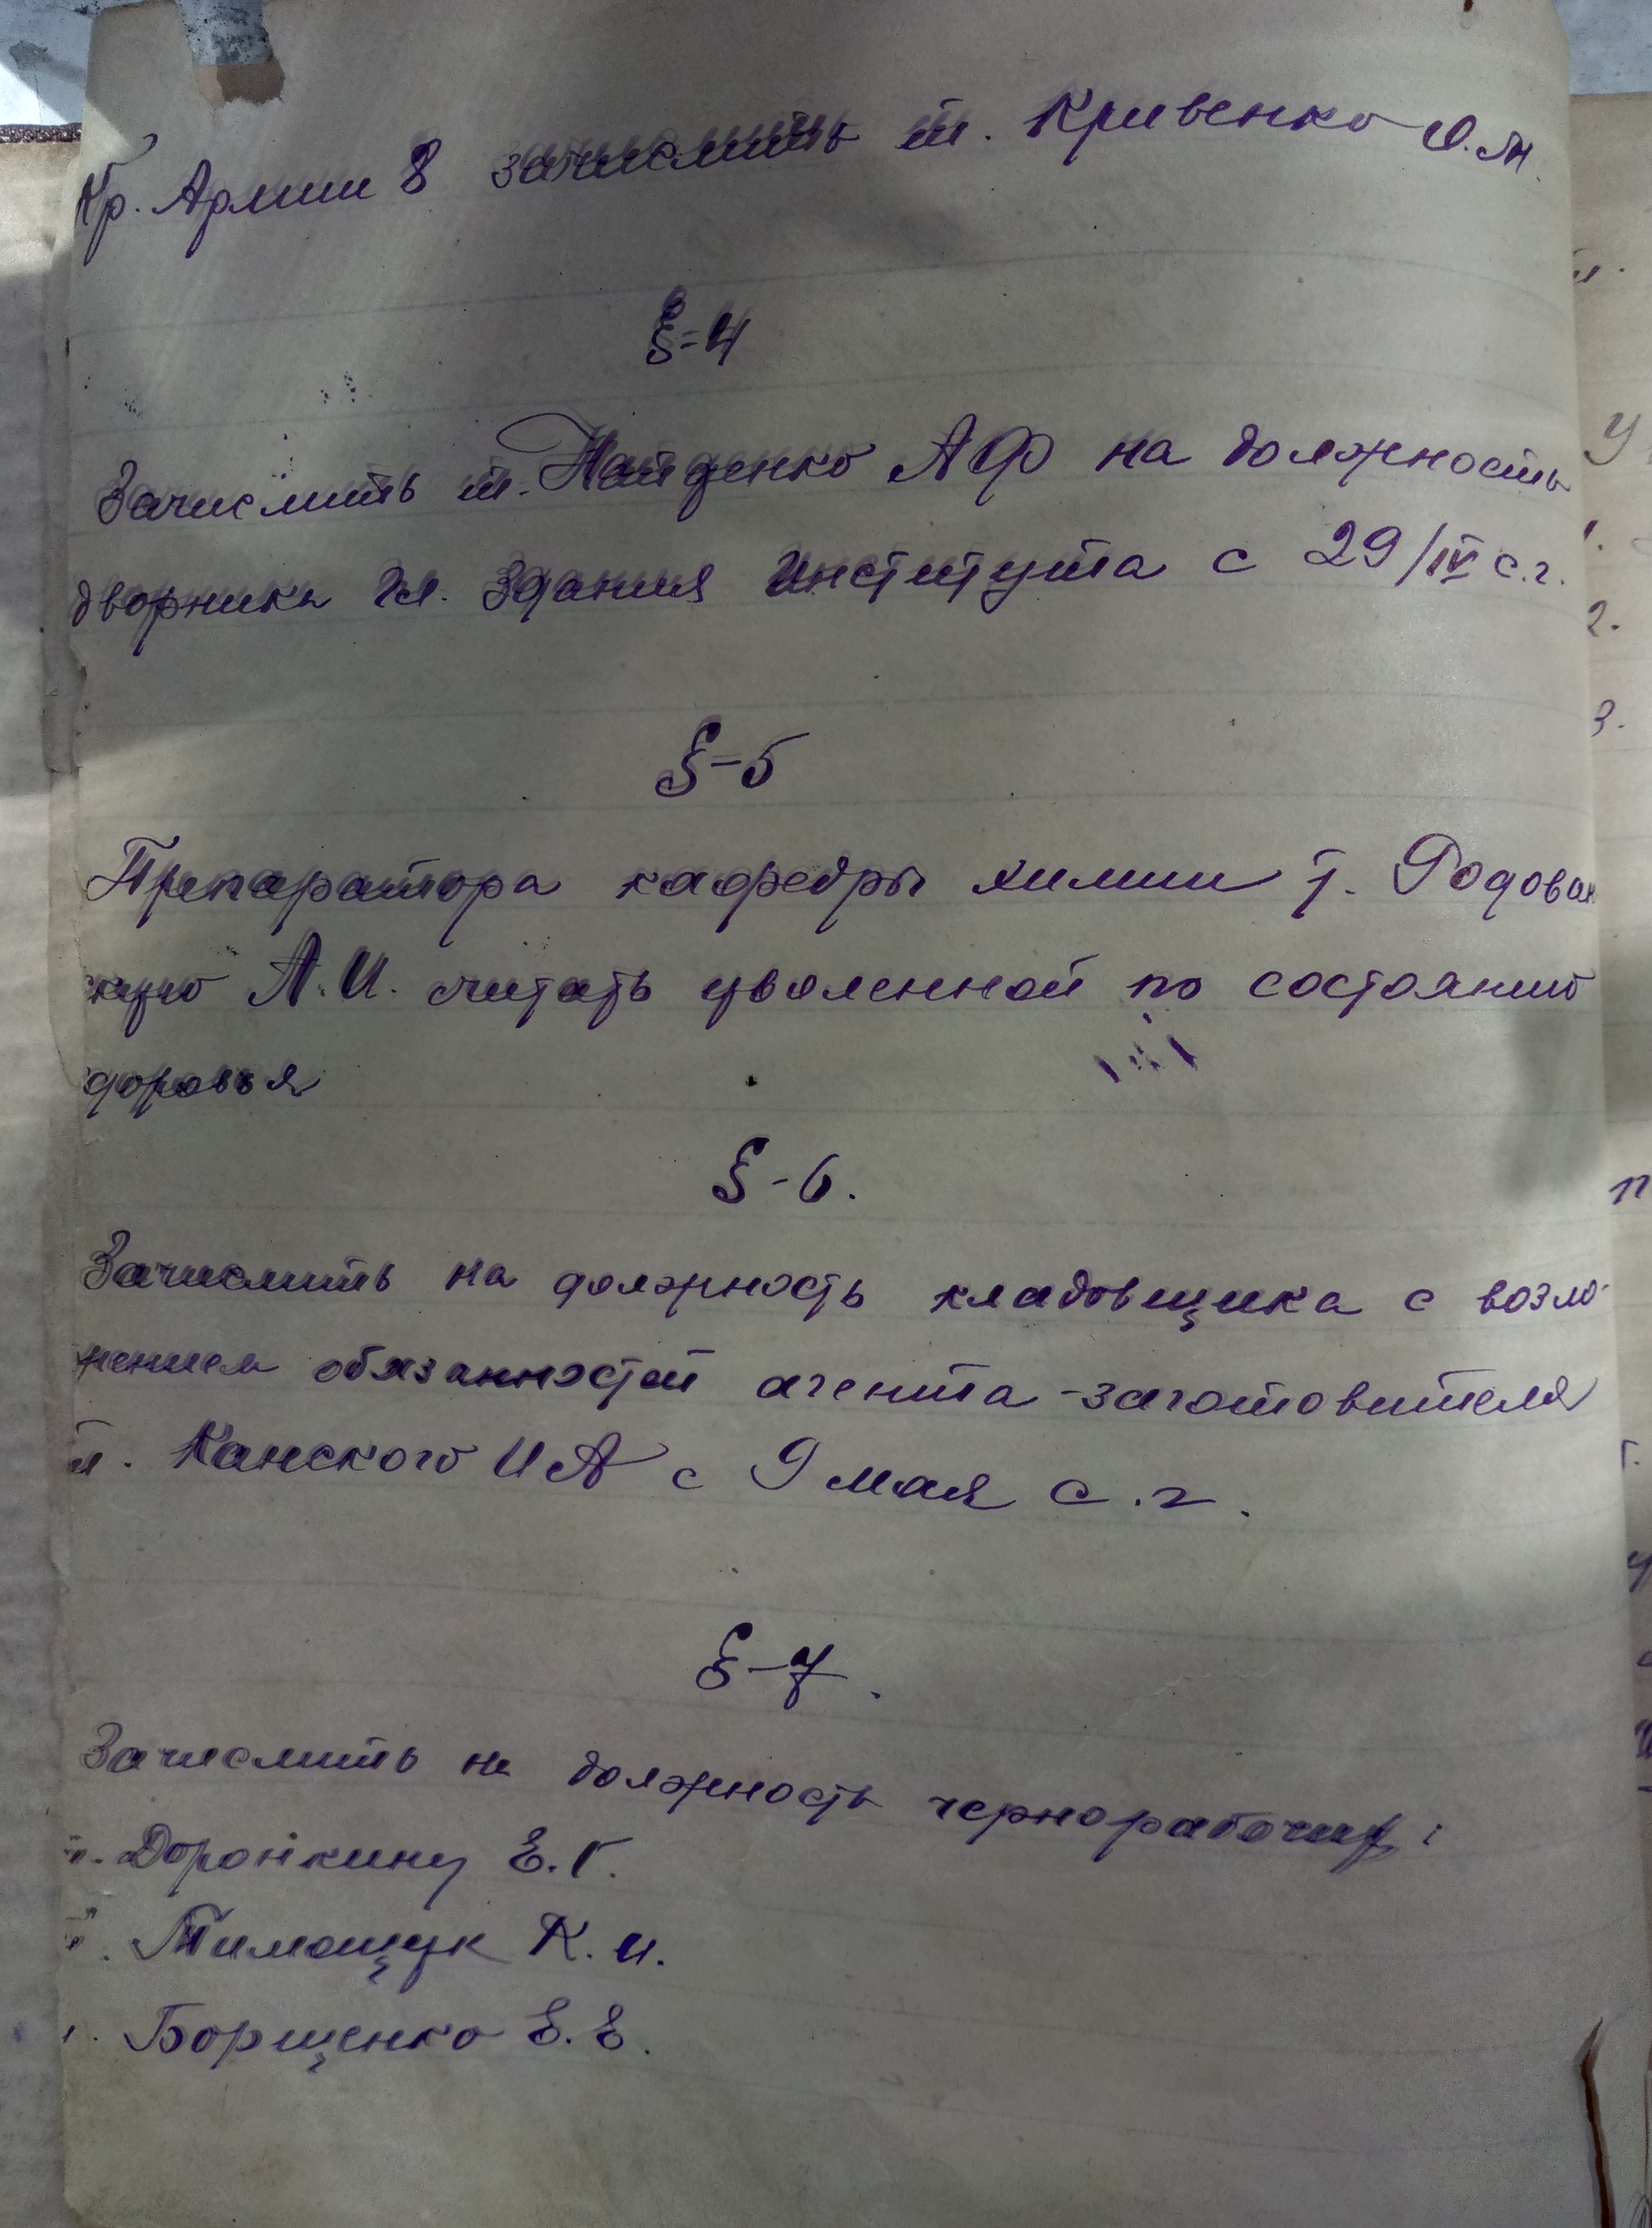 Кр. Армии 8 зачислить т. Кривенко О.М.
§-4
Зачислить т. Найденко АФ на должность
дворника гл. здания Института с 29/IV с.г.
§-5
Препаратора кафедры химии т. Родован
скую А.И. считать уволенной по состоянию
доровья
§-6.
Зачислить на должность кладовщика с возло-
жением обязанностей агента-заготовителя
т. Канского ИА с 9 мая с.г.
§-7.
Зачислить на должность чернорабочих:
т. Доронкину Е.Г.
т. Тимощук К.И.
т. Борщенко Е.Е.